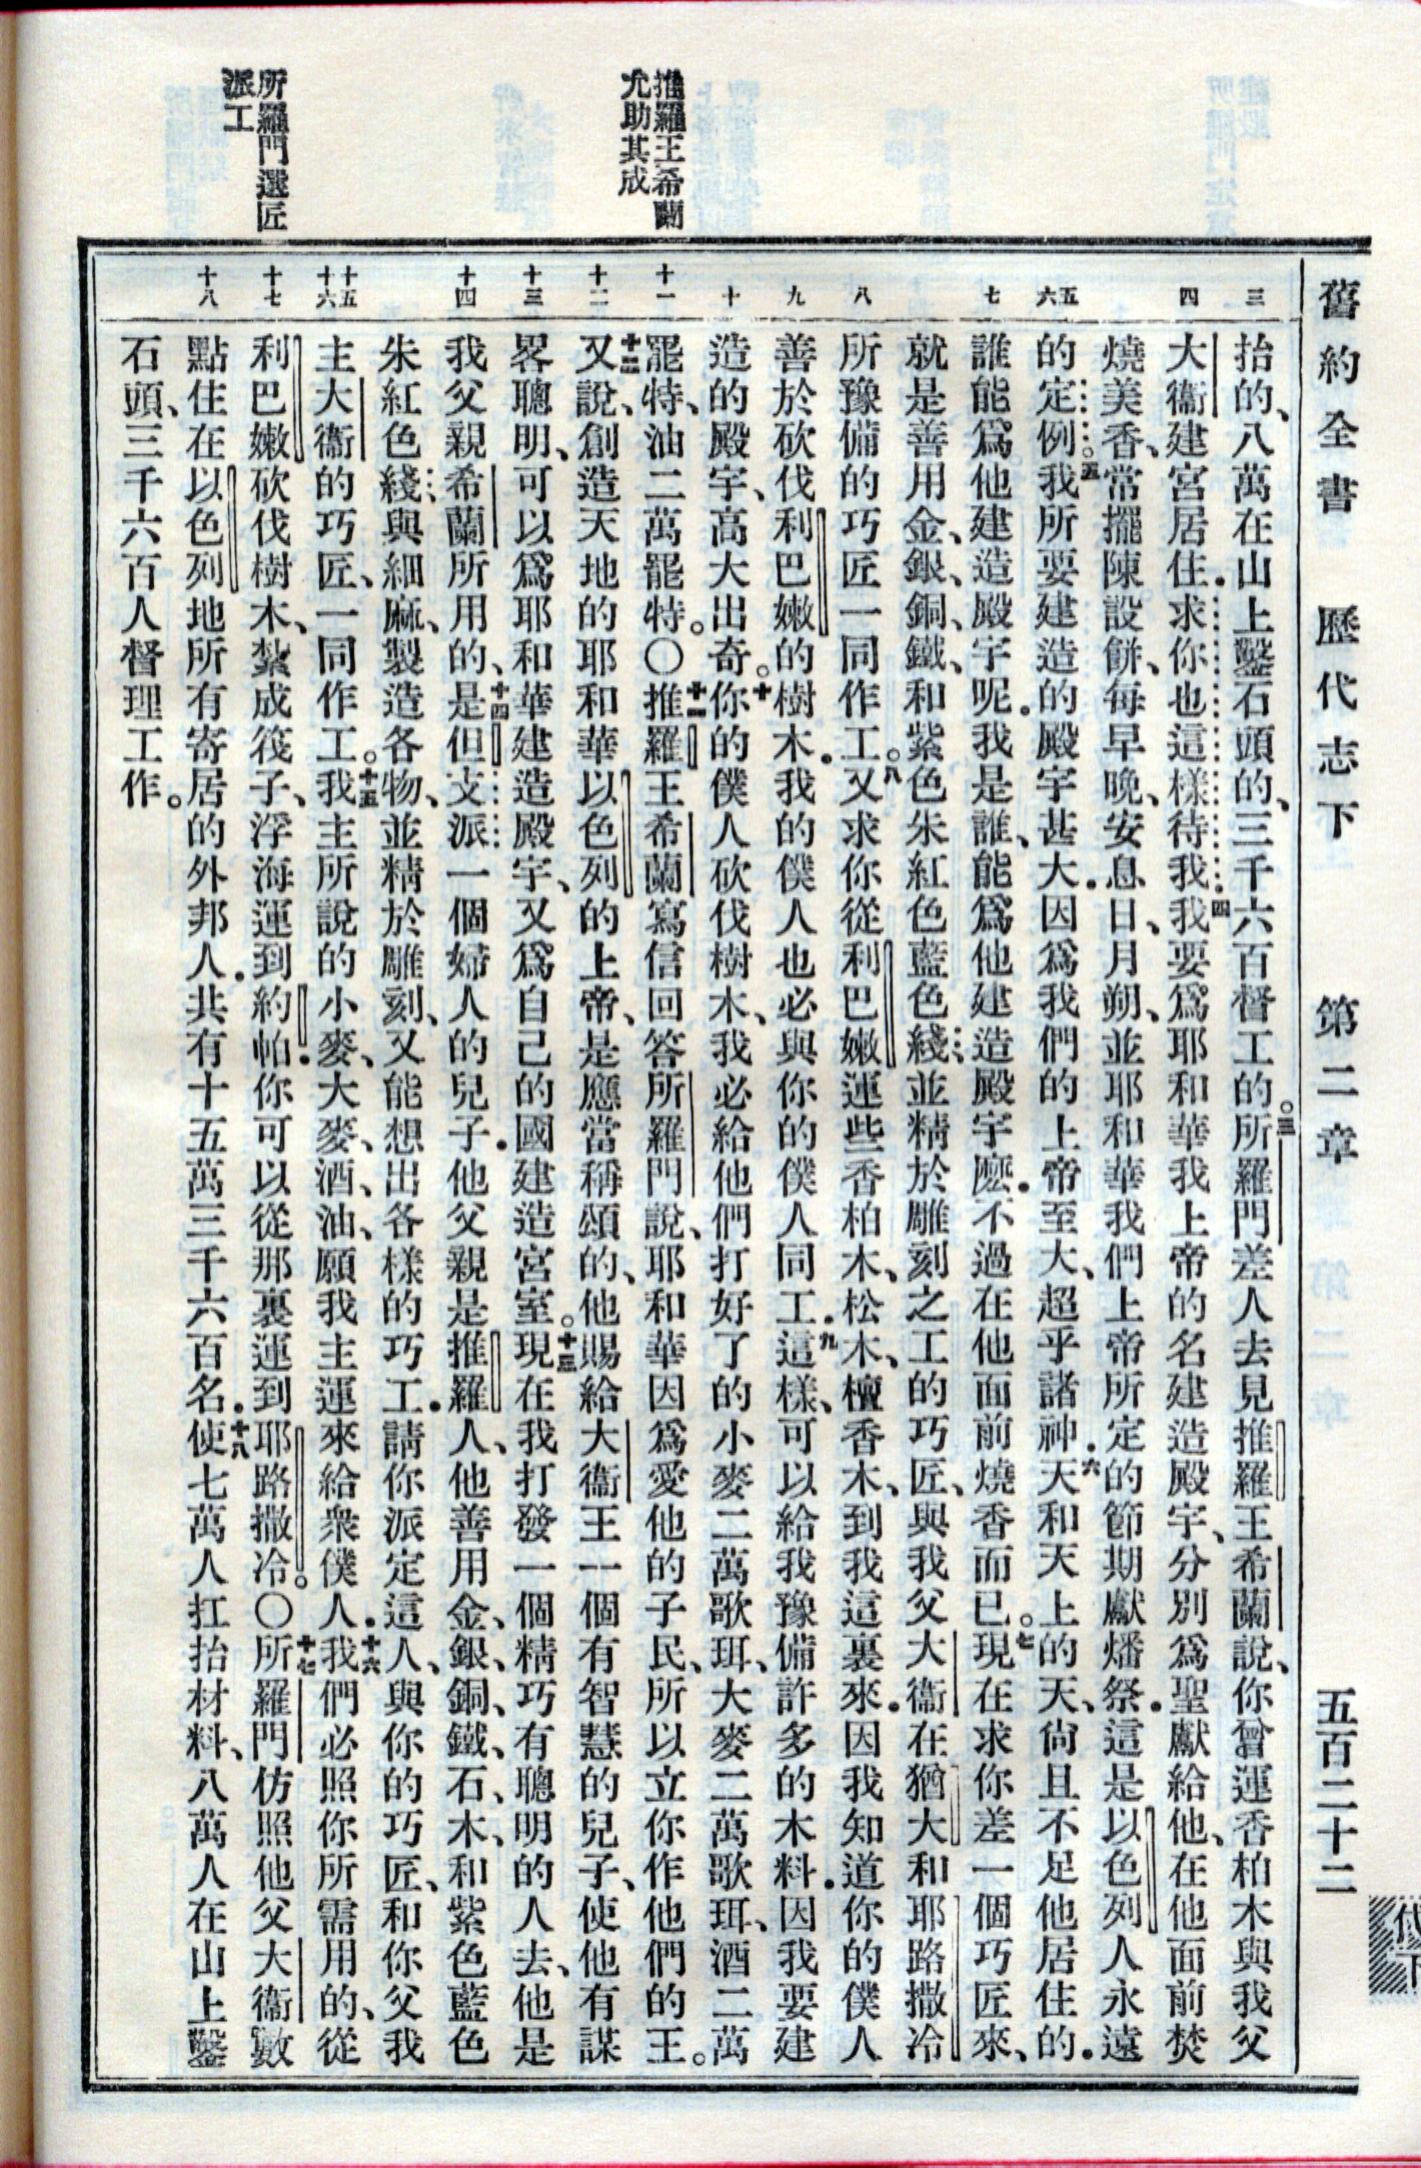 舊約全書 歷代志下 第二章 五百二十二
代下
推羅王希蘭
允助其成
所羅門選匠
派工
三
四
五
六
七
八
九
十
十一
十二
十三
十四
十五
十六
十七
十八
抬的、八萬在山上鑿石頭的、三千六百督工的。三所羅門差人去見推羅王希蘭說、你曾運香柏木與我父
大衞建宮居住．求你也這樣待我．四我要爲耶和華我上帝的名建造殿宇、分別爲聖獻給他、在他面前焚
燒美香、常擺陳設餅、每早晚、安息日、月朔、並耶和華我們上帝所定的節期獻燔祭．這是以色列人永遠
的定例。五我所要建造的殿宇甚大．因爲我們的上帝至大、超乎諸神．六天和天上的天、尙且不足他居住的．
誰能爲他建造殿宇呢．我是誰、能爲他建造殿宇麽．不過在他面前燒香而已。七現在求你差一個巧匠來、
就是善用金、銀、銅、鐵、和紫色朱紅色藍色綫、並精於雕刻之工的巧匠、與我父大衞在猶大和耶路撒冷
所豫備的巧匠一同作工。八又求你從利巴嫩運些香柏木、松木、檀香木、到我這裏來．因我知道你的僕人
善於砍伐利巴嫩的樹木．我的僕人也必與你的僕人同工．九這樣、可以給我豫備許多的木料．因我要建
造的殿宇、高大出奇。十你的僕人砍伐樹木、我必給他們打好了的小麥二萬歌珥、大麥二萬歌珥、酒二萬
罷特、油二萬罷特。〇十一推羅王希蘭寫信回答所羅門說、耶和華因爲愛他的子民、所以立你作他們的王。
十二又說、創造天地的耶和華以色列的上帝、是應當稱頌的、他賜給大衞王一個有智慧的兒子、使他有謀
畧聰明、可以爲耶和華建造殿宇、又爲自己的國建造宮室。十三現在我打發一個精巧有聰明的人去、他是
我父親希蘭所用的、十四是但支派一個婦人的兒子．他父親是推羅人、他善用金、銀、銅、鐵、石、木、和紫色藍色
朱紅色綫、與細麻、製造各物、並精於雕刻、又能想出各樣的巧工．請你派定這人、與你的巧匠、和你父我
主大衞的巧匠、一同作工。十五我主所說的小麥、大麥、酒、油、願我主運來給衆僕人．十六我們必照你所需用的、從
利巴嫩砍伐樹木、紮成筏子、浮海運到約帕．你可以從那裏運到耶路撒冷。〇十七所羅門仿照他父大衞數
點住在以色列地所有寄居的外邦人．共有十五萬三千六百名．十八使七萬人扛抬材料、八萬人在山上鑿
石頭、三千六百人督理工作。